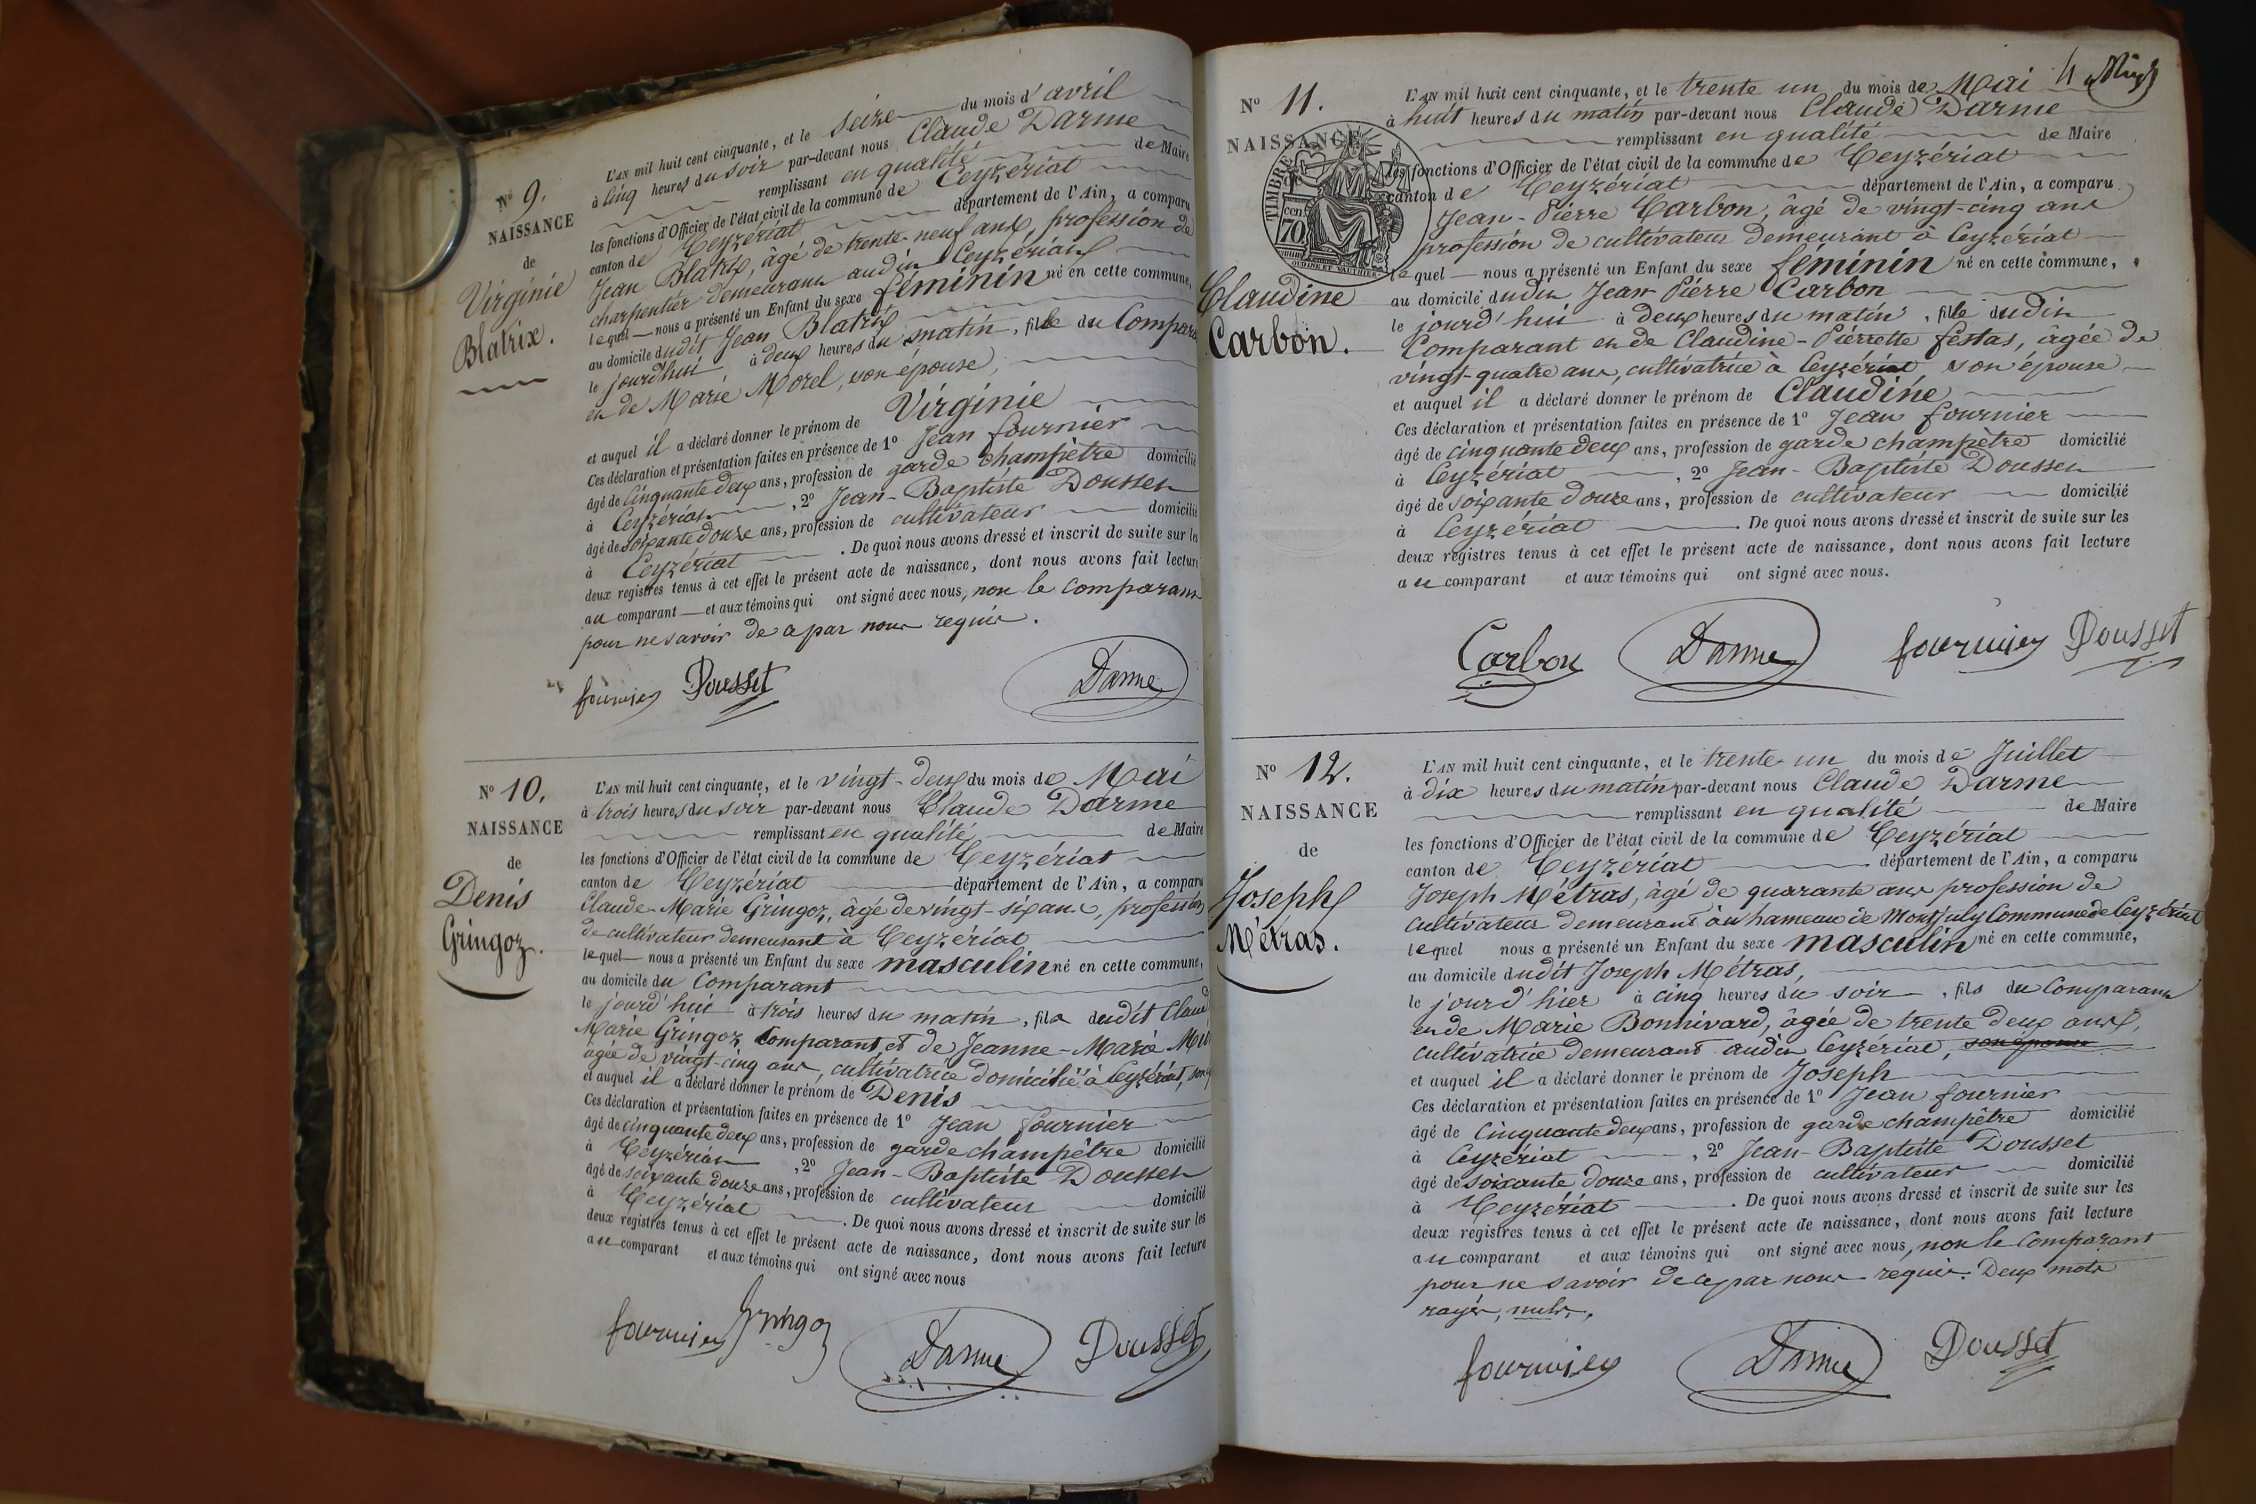 N° 9.
NAISSANCE
de
Virginie
Blatrix.
L'AN mil huit cent cinquante, et le seize du mois d'avril
à cinq heures du soir par-devant nous Claude Darme
remplissant en qualité de Maire
les fonctions d'Officier de l'état civil de la commune de Ceyzériat
canton de Ceyzériat département de l'Ain, a comparu
Jean Blatrix, âgé de trente-neuf ans, profession de
charpentier demeurant audit Ceyzériat
lequel nous a présenté un Enfant du sexe féminin né en cette commune,
au domicile dudit Jean Blatrix
le jourd'hui à deux heures du matin, fille du Compara
et de Marie Morel, son épouse,
et auquel il a déclaré donner le prénom de Virginie
Ces déclaration et présentation faites en présence de 1° Jean fournier
âgé de Cinquante deux ans, profession de garde champêtre domicilié
à Ceyzériat, 2° Jean-Baptiste Dousset
âgé de soixante douze ans, profession de cultivateur domicilié
à Ceyzériat. De quoi nous avons dressé et inscrit de suite sur les
deux registres tenus à cet effet le présent acte de naissance, dont nous avons fait lecture
au comparant et aux témoins qui ont signé avec nous, non le comparant
pour ne savoir de ce par nous requis.
fournier Dousset Darme
N° 10.
NAISSANCE
de
Denis
Gringoz.
L'AN mil huit cent cinquante, et le vingt-deux du mois de Mai
à trois heures du soir par-devant nous Claude Darme
remplissant en qualité de Maire
les fonctions d'Officier de l'état civil de la commune de Ceyzériat
canton de Ceyzériat département de l'Ain, a comparu
Claude-Marie Gringoz, âgé de vingt-six ans, profession
de cultivateur demeurant à Ceyzériat
lequel nous a présenté un Enfant du sexe masculin né en cette commune,
au domicile du Comparant
le jourd'hui à trois heures du matin, fils dudit Claud
Marie Gringoz Comparant et de Jeanne-Marie
âgée de vingt-cinq ans, cultivatrice domicilié à Ceyzériat, son
et auquel il a déclaré donner le prénom de Denis
Ces déclaration et présentation faites en présence de 1° Jean fournier
âgé de cinquante deux ans, profession de garde champêtre domicilié
à Ceyzériat, 2° Jean-Baptiste Dousset
âgé de soixante douze ans, profession de cultivateur domicilié
à Ceyzériat. De quoi nous avons dressé et inscrit de suite sur les
deux registres tenus à cet effet le présent acte de naissance, dont nous avons fait lecture
au comparant et aux témoins qui ont signé avec nous
fournier Gringoz Darme Dousset
4
N° 11.
NAISSANCE
TIMBRE
70 cen
OUDINÉ ET VAUTHIER
Claudine
Carbon.
L'AN mil huit cent cinquante, et le trente un du mois de Mai
à huit heures du matin par-devant nous Claude Darme
remplissant en qualité de Maire
les fonctions d'Officier de l'état civil de la commune de Ceyzériat
canton de Ceyzériat département de l'Ain, a comparu
Jean-Pierre Carbon, âgé de vingt-cinq ans
profession de cultivateur demeurant à Ceyzériat
lequel nous a présenté un Enfant du sexe féminin né en cette commune,
au domicile dudit Jean Pierre Carbon
le jourd'hui à deux heures du matin, fille dudit
Comparant et de Claudine-Pierrette festas, âgée de
vingt-quatre ans, cultivatrice à Ceyzériat son épouse
et auquel il a déclaré donner le prénom de Claudine
Ces déclaration et présentation faites en présence de 1° Jean fournier
âgé de cinquante deux ans, profession de garde champêtre domicilié
à Ceyzériat, 2° Jean-Baptiste Dousset
âgé de soixante douze ans, profession de cultivateur domicilié
à Ceyzériat. De quoi nous avons dressé et inscrit de suite sur les
deux registres tenus à cet effet le présent acte de naissance, dont nous avons fait lecture
au comparant et aux témoins qui ont signé avec nous.
Carbon Darme fournier Dousset
N° 12.
NAISSANCE
de
Joseph
Métras.
L'AN mil huit cent cinquante, et le trente-un du mois de Juillet
à dix heures du matin par-devant nous Claude Darme
remplissant en qualité de Maire
les fonctions d'Officier de l'état civil de la commune de Ceyzériat
canton de Ceyzériat département de l'Ain, a comparu
Joseph Métras, âgé de quarante ans profession de
cultivateur demeurant au hameau de Montjuly Commune de Ceyzériat
lequel nous a présenté un Enfant du sexe masculin né en cette commune,
au domicile dudit Joseph Métras,
le jourd'hier à cinq heures du soir, fils du Comparant
et de Marie Bonnivard, âgée de trente deux ans,
cultivatrice demeurant audit Ceyzériat, son épouse
et auquel il a déclaré donner le prénom de Joseph
Ces déclaration et présentation faites en présence de 1° Jean fournier
âgé de Cinquante deux ans, profession de garde champêtre domicilié
à Ceyzériat, 2° Jean-Baptiste Dousset
âgé de soixante douze ans, profession de cultivateur domicilié
à Ceyzériat. De quoi nous avons dressé et inscrit de suite sur les
deux registres tenus à cet effet le présent acte de naissance, dont nous avons fait lecture
au comparant et aux témoins qui ont signé avec nous, non le Comparant
pour ne savoir de ce par nous requis. Deux mots
rayés, nuls.
fournier Darme Dousset